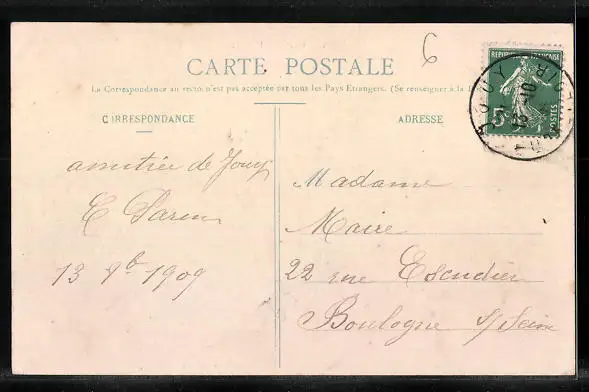 6
CARTE POSTALE
La Correspondance au recto n'est pas acceptée par tous les Pays Etrangers. (Se renseigner à la
CORRESPONDANCE
ADRESSE
REPUBLIQUE FRANÇAISE
5c
POSTES
amitiée de Jouy
E Paren
13 9b 1909
Madame
Maire
22 rue Escudier
Boulogne s/Seine